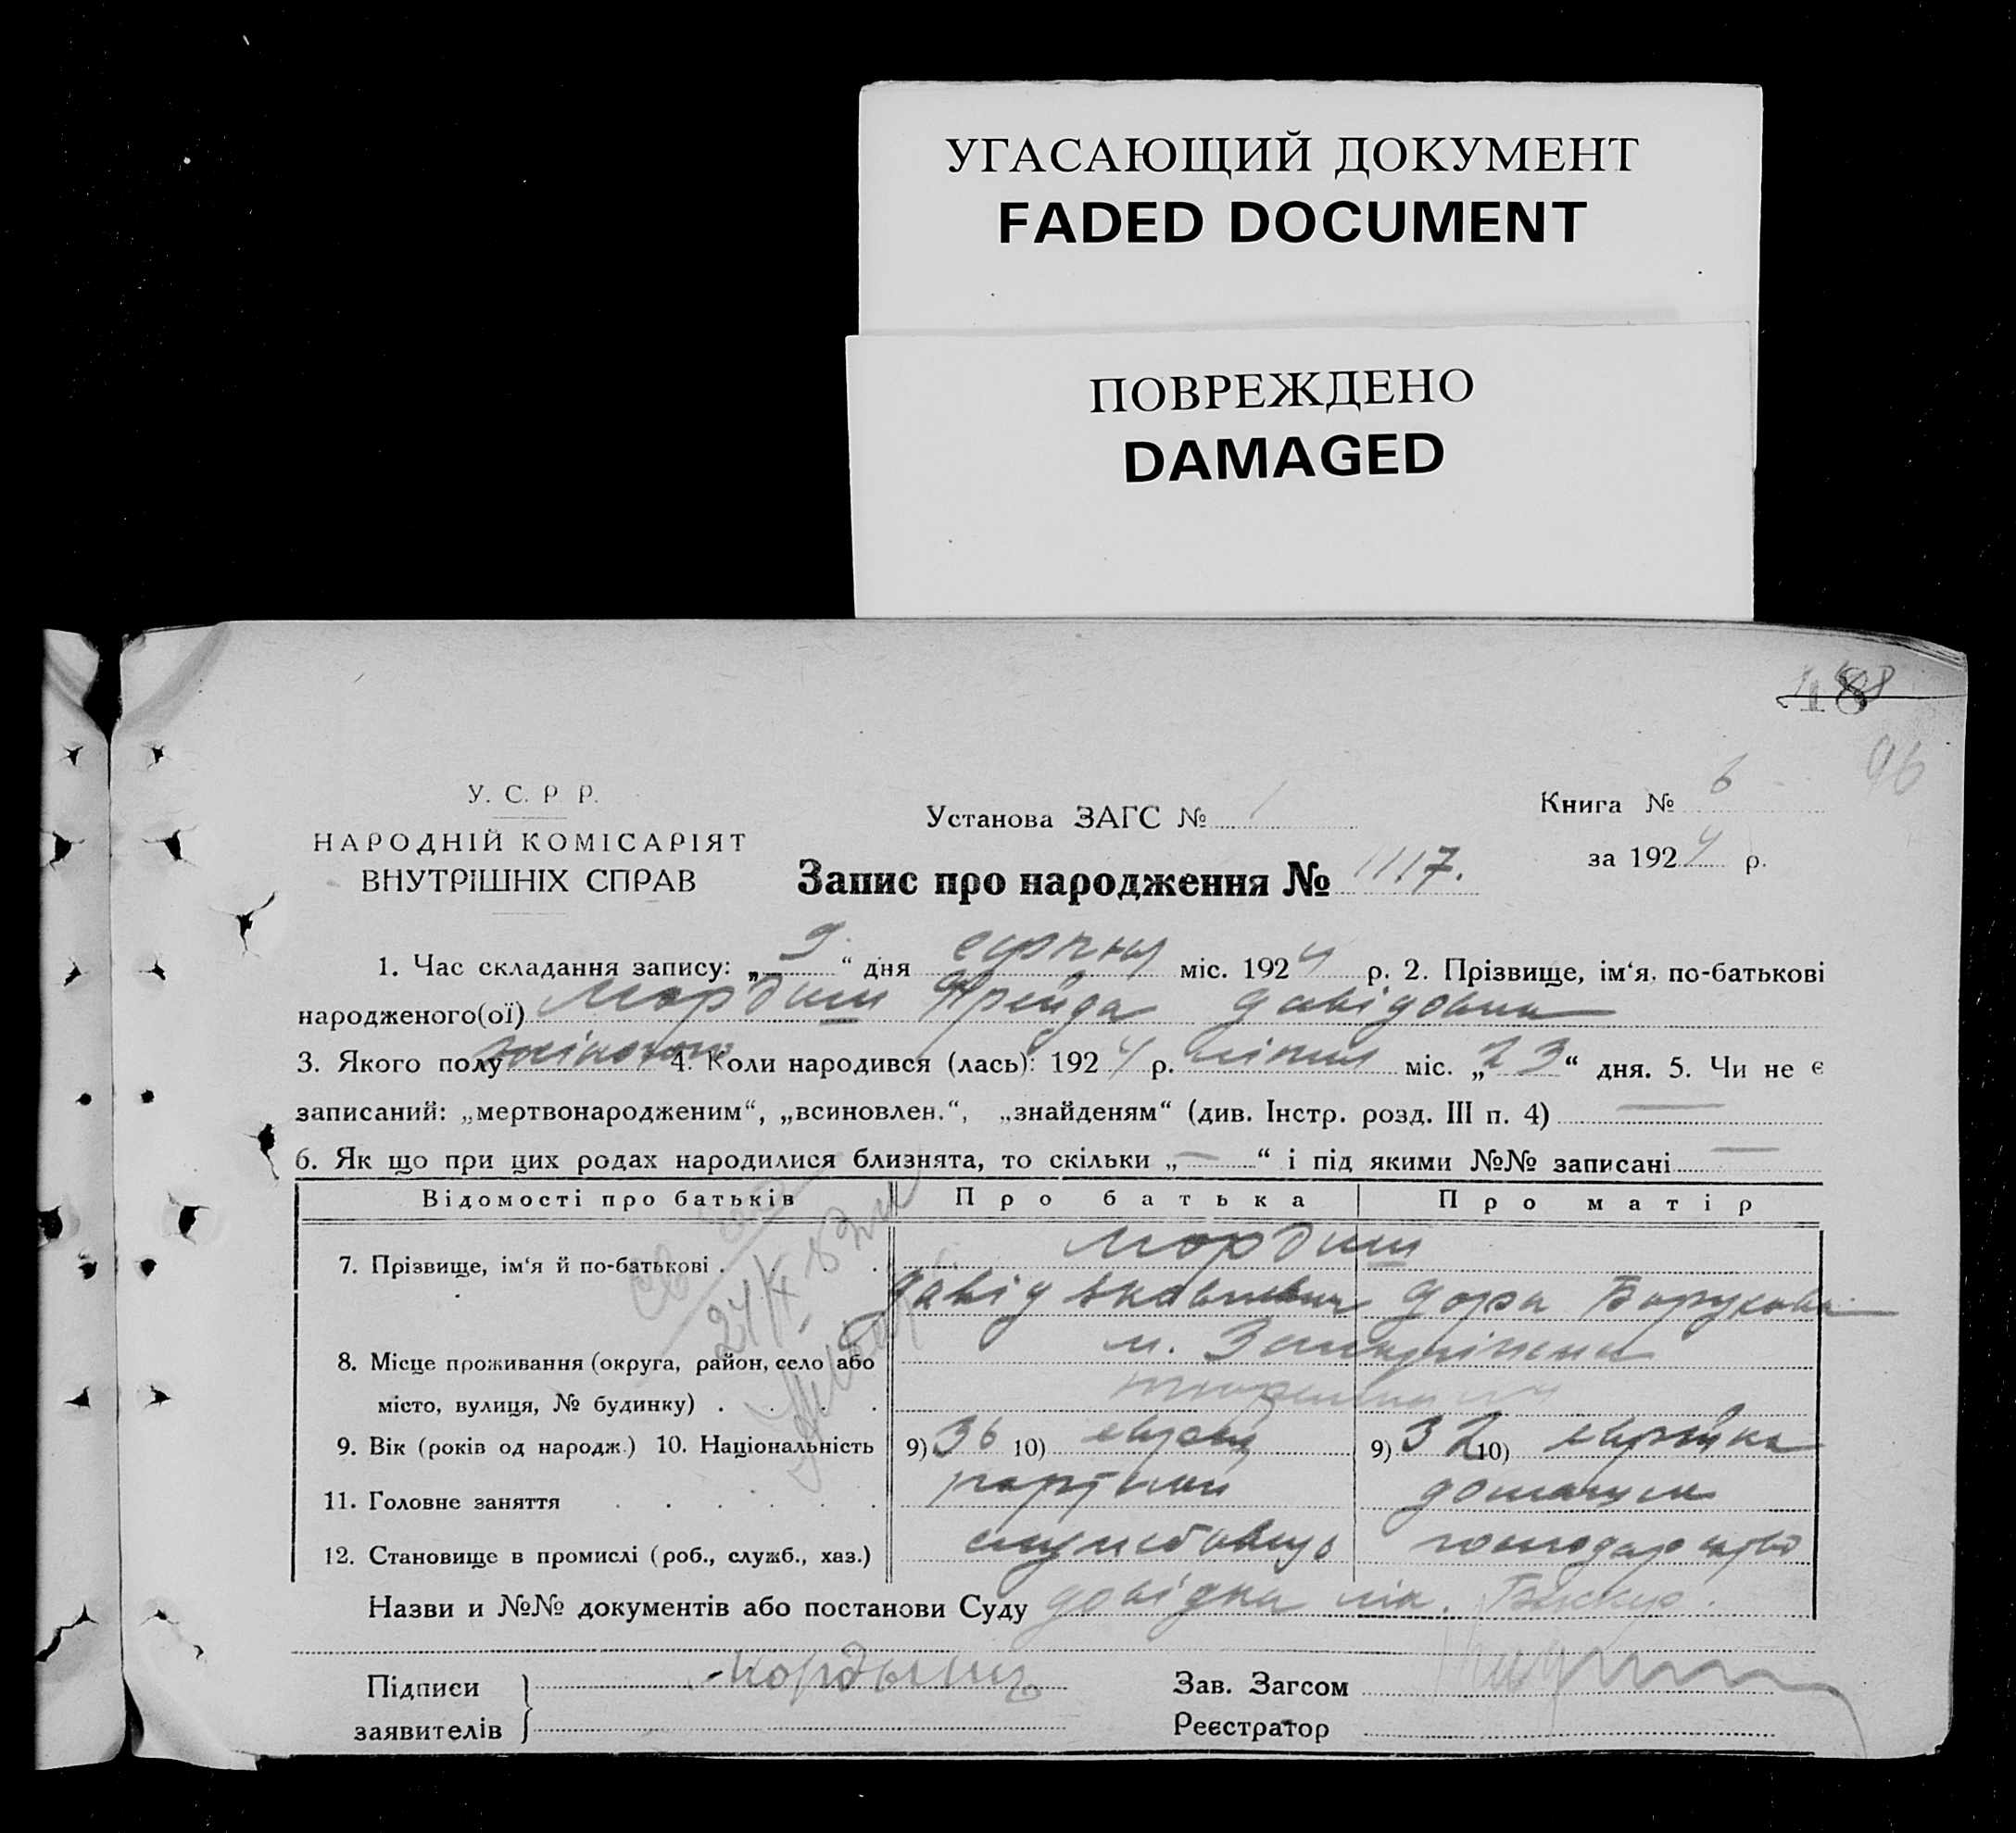 УГАСАЮЩИЙ ДОКУМЕНТ
FADED DOCUMENT
ПОВРЕЖДЕНО
DAMAGED
96
У. С. Р Р.
НАРОДНІЙ КОМІСАРІЯТ
ВНУТРІШНІХ СПРАВ
Установа ЗАГС № 1
Книга № 6
за 1924 р.
Запис про народження № 1117.
1. Час складання запису: „ 9 “ дня серпня міс. 1924 р. 2. Прізвище, ім‘я, по-батькові
народженого(ої) Мордиш Фрейда Давідовна
3. Якого полу жіночого 4. Коли народився (лась): 1924 р. липня міс. „23“ дня. 5. Чи не є
записаний: „мертвонародженим“, „всиновлен.“, „знайденям“ (див. Інстр. розд. III п. 4) —
6. Як що при цих родах народилися близнята, то скільки „—“ і під якими №№ записані —
Відомості про батьків Про батька Про матір
7. Прізвище, ім‘я й по-батькові . . Мордиш
Давід Яковлевич Дора Борухова
8. Місце проживання (округа, район, село або м.
місто, вулиця, № будинку) . . . .
9. Вік (років од народж.) 10. Національність 9) 36 10) еврей 9) 32 10) еврейка
11. Головне заняття . . . . . .
домашнє
12. Становище в промислі (роб., служб., хаз.) службовець господарство
Назви и №№ документів або постанови Суду довідка лік.
Підписи
заявителів } Мордышъ
Зав. Загсом
Реєстратор